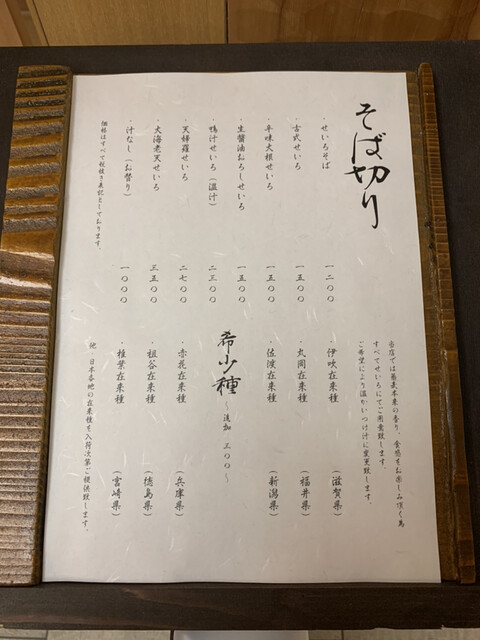 そば切り
・せいろそば 一二〇〇
・古式せいろ 一五〇〇
・辛味大根せいろ 一五〇〇
・生醤油おろしせいろ 一五〇〇
・鴨汁せいろ(温汁) 二三〇〇
・天婦羅せいろ 二七〇〇
・大海老天せいろ 三五〇〇
・汁なし(お替り) 一〇〇〇
価格はすべて税抜き表記としております。
当店では蕎麦本来の香り、食感をお楽しみ頂く為
すべてせいろにてご用意致します。
ご希望により温かいつけ汁に変更致します。
・伊吹在来種 (滋賀県)
・丸岡在来種 (福井県)
・佐渡在来種 (新潟県)
希少種 〜追加 三〇〇〜
・赤花在来種 (兵庫県)
・祖谷在来種 (徳島県)
・椎葉在来種 (宮崎県)
他、日本各地の在来種を入荷次第ご提供致します。